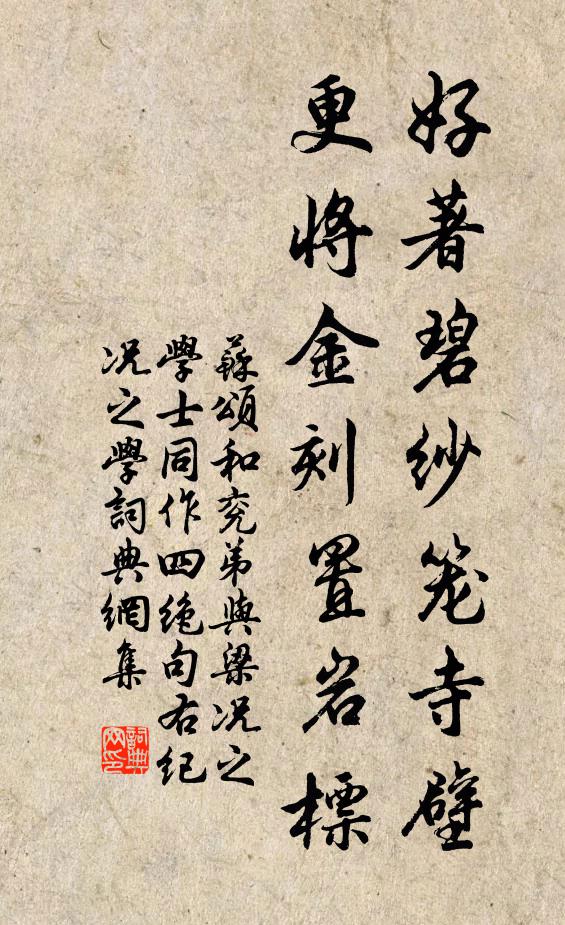 好著碧纱笼寺壁
更将金刻置岩標
蘇頌和兖弟與梁况之
學士同作四绝句右纪
况之學詞典網集
詞典网印